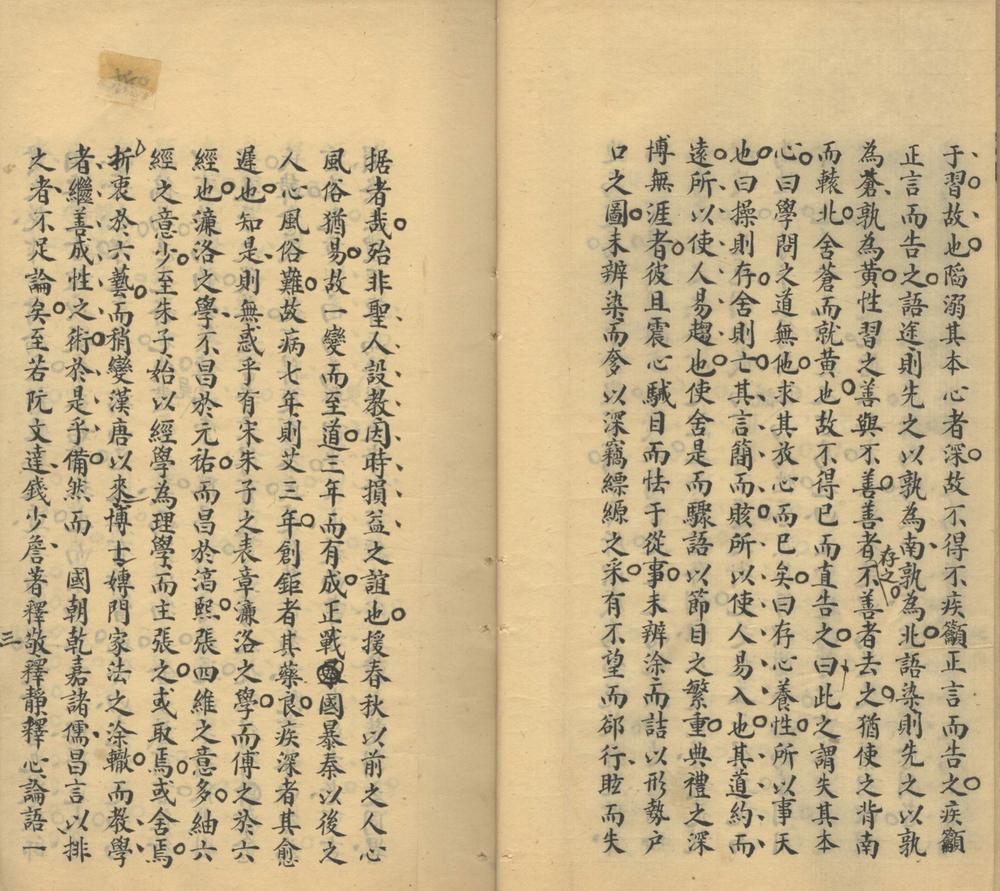 于習故也陷溺其本心者深故不得不疾籲正言而告之疾籲
正言而告之語途則先之以孰為南孰為北語染則先之以孰
為蒼孰為黃性習之善與不善善者存之不善者去之猶使之背南
而轅北舍蒼而就黃也故不得已而直告之曰此之謂失其本
心曰學問之道無他求其放心而已矣曰存心養性所以事天
也曰操則存舍則亡其言簡而賅所以使人易入也其道約而
遠所以使人易趨也使舍是而驟語以節目之繁重典禮之深
博無涯者彼且震心駴目而怯于從事未辨涂而詰以形勢戶
口之圖未辨染而奓以深竊縹縓之采有不望而郤行眩而失
据者哉殆非聖人設教因時損益之誼也援春秋以前之人心
風俗猶易故一變而至道三年而有成正戰國暴秦以後之
人心風俗難故病七年則艾三年創鉅者其藥良疾深者其愈
遲也知是則無惑乎有宋朱子之表章濂洛之學而傅之於六
經也濂洛之學不昌於元祐而昌於滈熙張四維之意多紬六
經之意少至朱子始以經學為理學而主張之或取焉或舍焉
折衷於六藝而稍變漢唐以來博士專門家法之涂轍而教學
者繼善成性之術於是乎備然而國朝乾嘉諸儒昌言以排
之者不足論矣至若阮文達錢少詹著釋敬釋靜釋心論語一
三